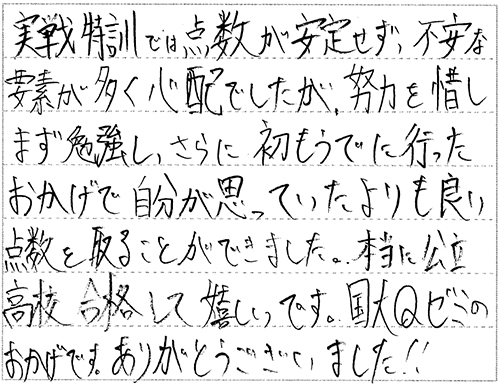 実戦特訓では点数が安定せず、不安な
要素が多く心配でしたが、努力を惜し
まず勉強し、さらに初もうでに行った
おかげで自分が思っていたよりも良い
点数を取ることができました。本当に公立
高校合格して嬉しいです。国大Qゼミの
おかげです。ありがとうございました!!